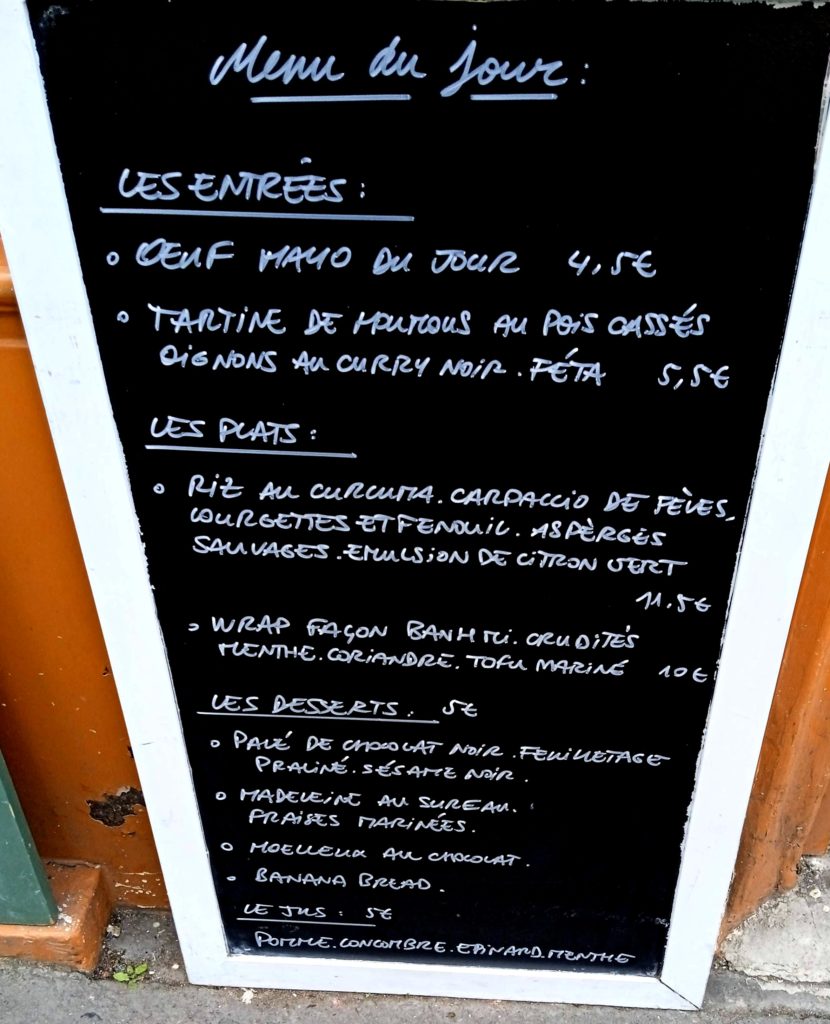 Menu du jour :
LES ENTRÉES :
◦ OEUF MAYO DU JOUR 4,5€
◦ TARTINE DE HOUMOUS AU POIS CASSÉS
OIGNONS AU CURRY NOIR. FÉTA 5,5€
LES PLATS :
◦ RIZ AU CURCUMA. CARPACCIO DE FÈVES,
COURGETTES ET FENOUIL. ASPÈRGES
SAUVAGES. EMULSION DE CITRON VERT
11.5€
◦ WRAP FAÇON BANH MI. CRUDITÉS
MENTHE. CORIANDRE. TOFU MARINÉ 10€
LES DESSERTS : 5€
◦ PAVÉ DE CHOCOLAT NOIR. FEUILLETAGE
PRALINÉ. SÉSAME NOIR.
◦ MADELEINE AU SUREAU.
FRAISES MARINÉES.
◦ MOELLEUX AU CHOCOLAT.
◦ BANANA BREAD.
LE JUS : 5€
POMME. CONCOMBRE. EPINARD. MENTHE